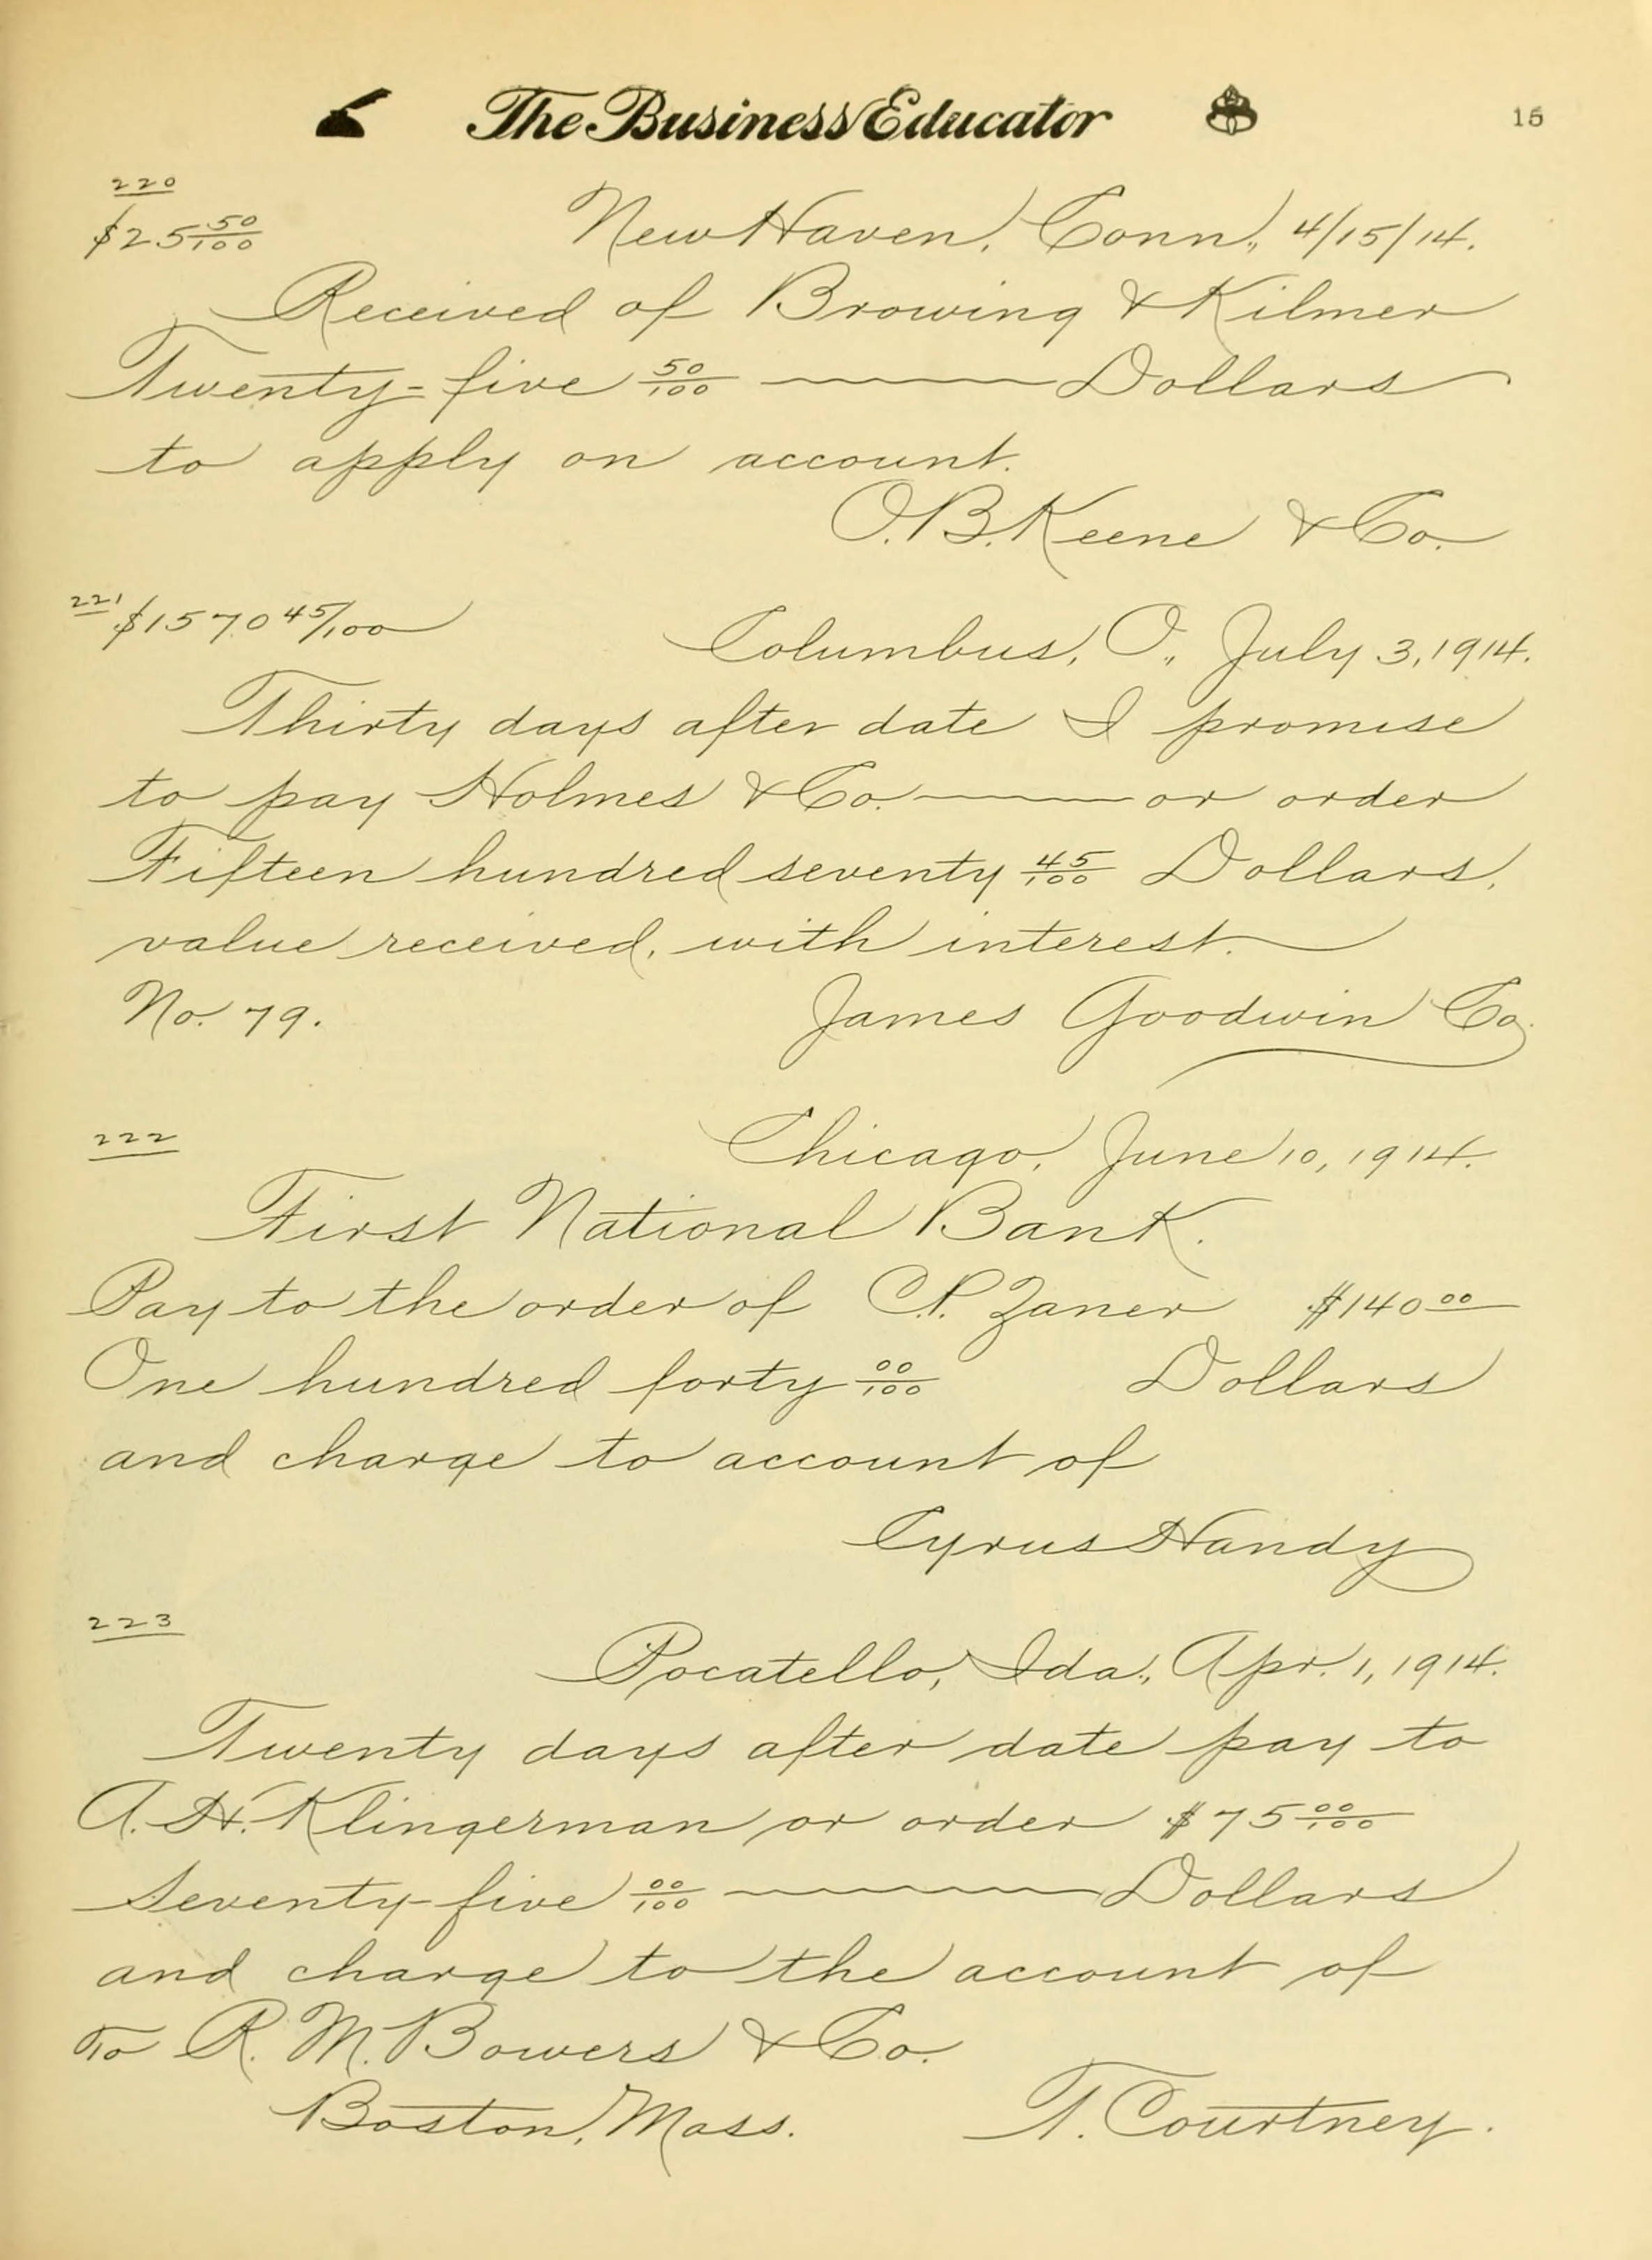 The Business Educator 15
220
$25 50/100 New Haven, Conn., 4/15/14.
Received of Browing & Kilmer
Twenty-five 50/100 ~~~~ Dollars
to apply on account.
O.B. Keene & Co.
221 $1570 45/100
Columbus, O., July 3, 1914.
Thirty days after date I promise
to pay Holmes & Co. ~~~~ or order
Fifteen hundred seventy 45/100 Dollars,
value received, with interest.
No. 79. James Goodwin Co.
222 Chicago, June 10, 1914.
First National Bank.
Pay to the order of C.P. Zaner $140 00
One hundred forty 00/100 Dollars
and charge to account of
Cyrus Handy
223
Pocatello, Ida., Apr. 1, 1914.
Twenty days after date pay to
A.H. Klingerman or order $75 00/100
Seventy-five 00/100 ~~~~ Dollars
and charge to the account of
To R. M. Bowers & Co.
Boston, Mass. T. Courtney.